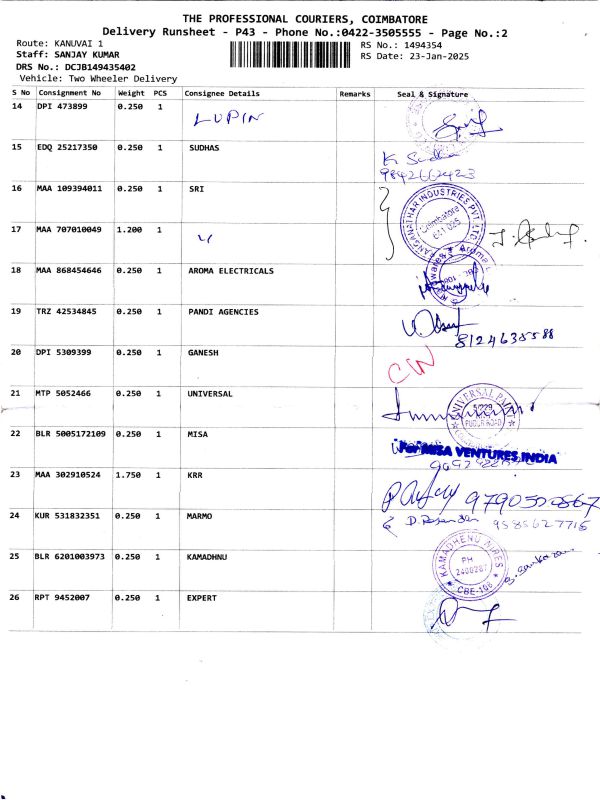 THE PROFESSIONAL COURIERS, COIMBATORE
Delivery Runsheet - P43 - Phone No.:0422-3505555 - Page No.:2
Route: KANUVAI 1
Staff: SANJAY KUMAR
DRS No.: DCJB149435402
Vehicle: Two Wheeler Delivery
RS No.: 1494354
RS Date: 23-Jan-2025
S No Consignment No Weight PCS Consignee Details Remarks Seal & Signature
14 DPI 473899 0.250 1 LUPIN
15 EDQ 25217350 0.250 1 SUDHAS
9842662423
16 MAA 109394011 0.250 1 SRI
17 MAA 707010049 1.200 1
18 MAA 868454646 0.250 1 AROMA ELECTRICALS
19 TRZ 42534845 0.250 1 PANDI AGENCIES
8124635588
20 DPI 5309399 0.250 1 GANESH
21 MTP 5052466 0.250 1 UNIVERSAL
UNIVERSAL PAINT
22 BLR 5005172109 0.250 1 MISA
For MISA VENTURES INDIA
23 MAA 302910524 1.750 1 KRR
24 KUR 531832351 0.250 1 MARMO
9585627715
25 BLR 6201003973 0.250 1 KAMADHNU
KAMADHENU WIRES
PH
2400287
CBE-108
26 RPT 9452007 0.250 1 EXPERT